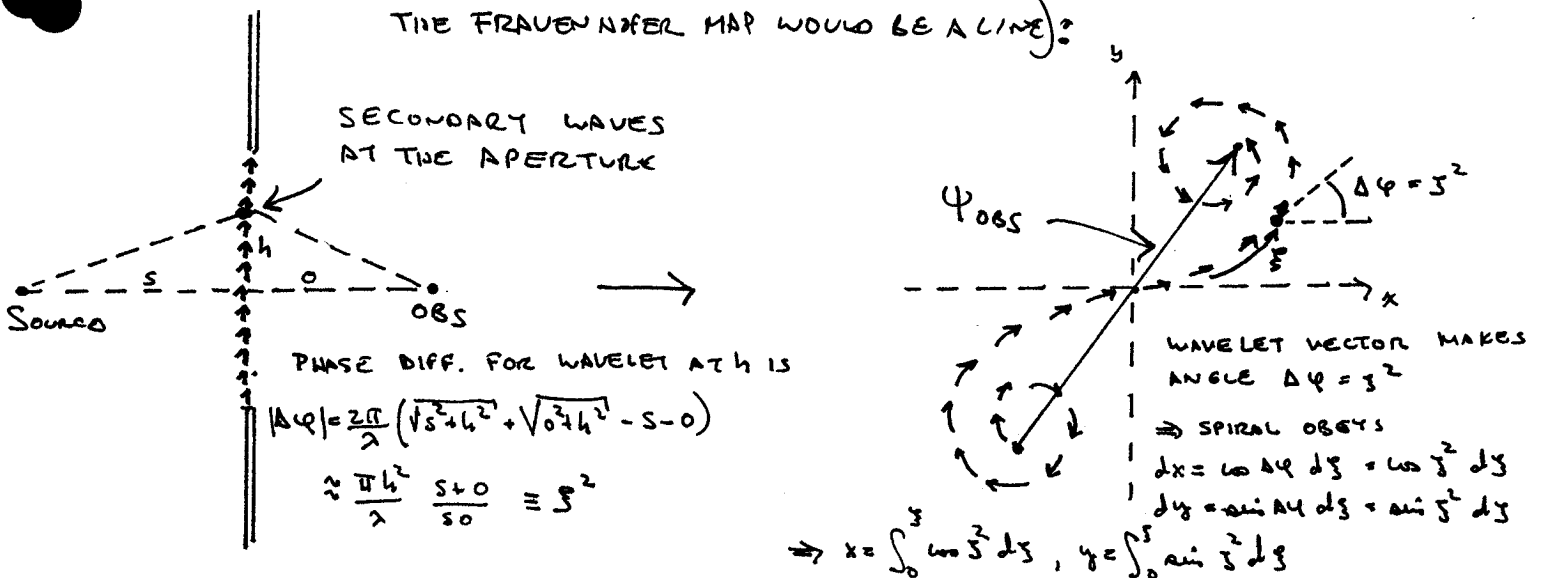 THE FRAUENNHOFER MAP WOULD BE A LINE):
SECONDARY WAVES
AT THE APERTURE
h
S
O
SOURCE
OBS
PHASE DIFF. FOR WAVELET AT h IS
|Δφ| = 2π/λ (√(s²+h²) + √(o²+h²) - s - o)
≈ πh²/λ (s+o)/(so) ≡ ξ²
y
Ψ_OBS
Δφ = ξ²
ξ
x
WAVELET VECTOR MAKES
ANGLE Δφ = ξ²
⇒ SPIRAL OBEYS
dx = cos Δφ dξ = cos ξ² dξ
dy = sin Δφ dξ = sin ξ² dξ
⇒ x = ∫₀^ξ cos ξ² dξ, y = ∫₀^ξ sin ξ² dξ